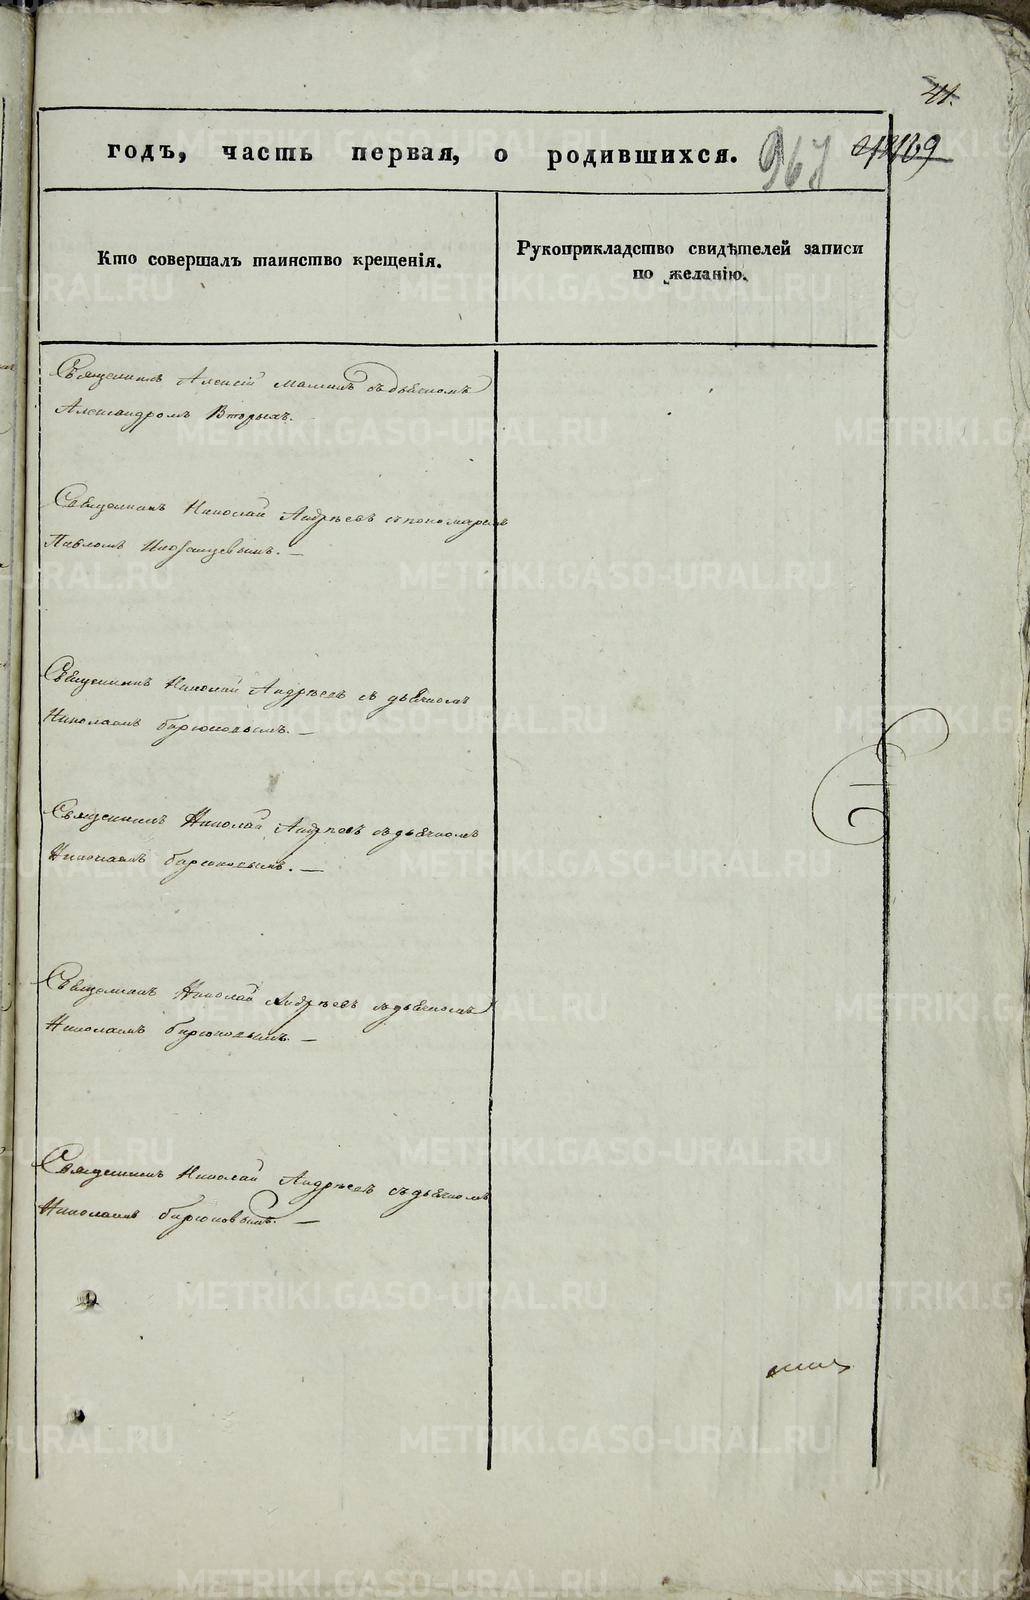 41.
годъ, часть первая, о родившихся. 967
Кто совершалъ таинство крещенія.
Рукоприкладство свидѣтелей записи
по желанію.
Священникъ Алексій Маминъ съ дьячкомъ
Александромъ Вторыхъ.
Священникъ Николай Андрѣевъ съ пономаремъ
Павломъ
Священникъ Николай Андрѣевъ съ дьячкомъ
Николаемъ Бирюковымъ. —
Священникъ Николай Андрѣевъ съ дьячкомъ
Николаемъ Бирюковымъ. —
Священникъ Николай Андрѣевъ съ дьячкомъ
Николаемъ Бирюковымъ. —
Священникъ Николай Андрѣевъ съ дьячкомъ
Николаемъ Бирюковымъ. —
METRIKI.GASO-URAL.RU